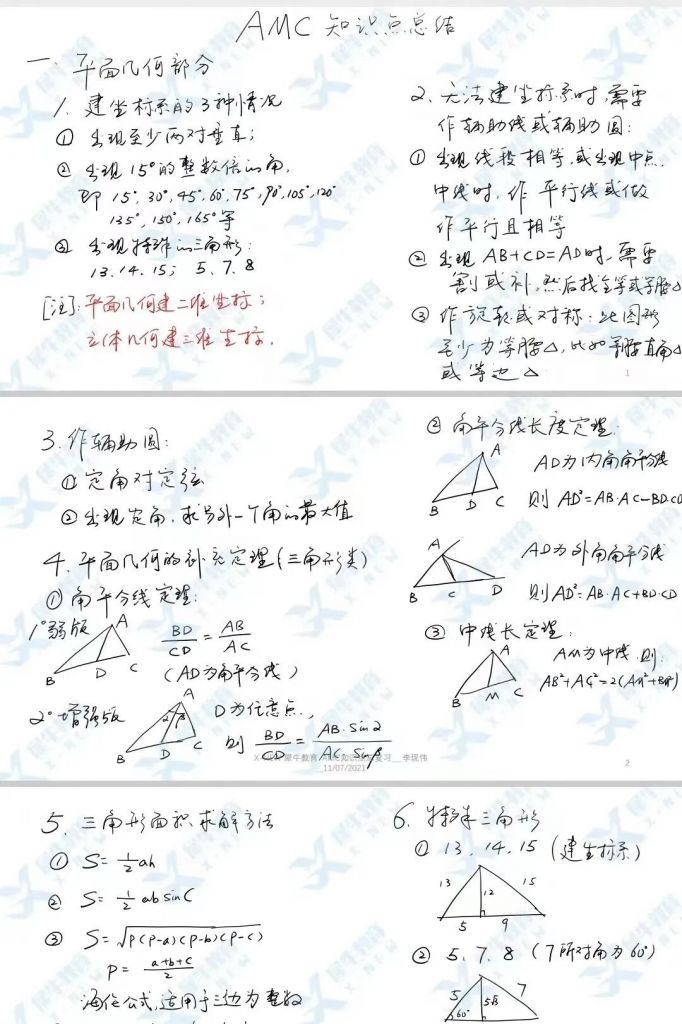 AMC 知识点总结
一. 平面几何部分
1. 建坐标系的3种情况
① 出现至少两对垂直;
② 出现15°的整数倍的角,
即 15°, 30°, 45°, 60°, 75°, 90°, 105°, 120°
135°, 150°, 165° 等
③ 出现特殊的三角形:
13. 14. 15; 5. 7. 8
[注]: 平面几何建二维坐标;
立体几何建三维坐标.
2. 无法建坐标系时, 需要
作辅助线或辅助圆:
① 出现线段相等, 或出现中点.
中线时, 作 平行线或做
作平行且相等
② 出现 AB+CD=AD时, 需要
割或补, 然后找全等或等腰△
③ 作旋转或对称: 此图形
至少为等腰△, 比如等腰直角△
或等边△
1
3. 作辅助圆:
① 定角对定弦
② 出现定角, 求另外一个角的最大值
4. 平面几何的补充定理(三角形类)
① 角平分线定理:
1° 弱版
A
B D C
BD/CD = AB/AC
(AD为角平分线)
2° 增强版
A
α β
B D C
D为任意点,
则 BD/CD = AB·Sinα/AC·Sinβ
② 角平分线长度定理:
A
B D C
AD为内角角平分线
则 AD²=AB·AC−BD·CD
A
B C D
AD为外角角平分线
则AD²=AB·AC+BD·CD
③ 中线长定理:
A
B M C
AM为中线, 则:
AB²+AC²=2(AM²+BM²)
犀牛教育 AMC知识点复习__李现伟
_11/07/2021
2
5. 三角形面积求解方法
① S= ½ah
② S= ½ab sinC
③ S=√P(P-a)(P-b)(P-c)
P= (a+b+c)/2
海伦公式, 适用于三边为整数
6. 特殊三角形
① 13, 14, 15 (建坐标系)
13 12 15
5 9
② 5, 7, 8 (7所对角为60°)
5 7
60°